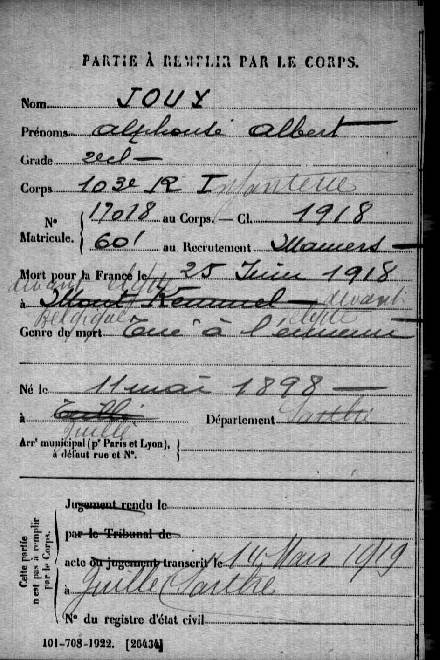 PARTIE À REMPLIR PAR LE CORPS.
Nom JOUY
Prénoms Alphonse Albert
Grade
Corps 103e R Infanterie
N° 17018 au Corps. — Cl. 1918
Matricule. 601 au Recrutement Mamers
Mort pour la France le 25 Juin 1918
devant
à Mont Kemmel devant
Belgique
Genre de mort Tué à l'ennemi
Né le 11 mai 1898
à Département Sarthe
Arrt municipal (pr Paris et Lyon),
à défaut rue et N°.
Cette partie
n'est pas à remplir
par le Corps.
Jugement rendu le
par le Tribunal de
acte ou jugement transcrit le 14 Mars 1919
à Sarthe
N° du registre d'état civil
101-708-1922. [26434]